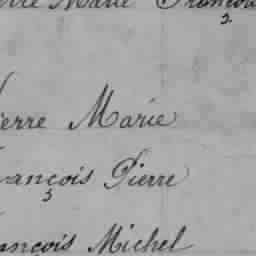 erre Marie François
2.
ierre Marie
ançois Pierre
3
ançois Michel